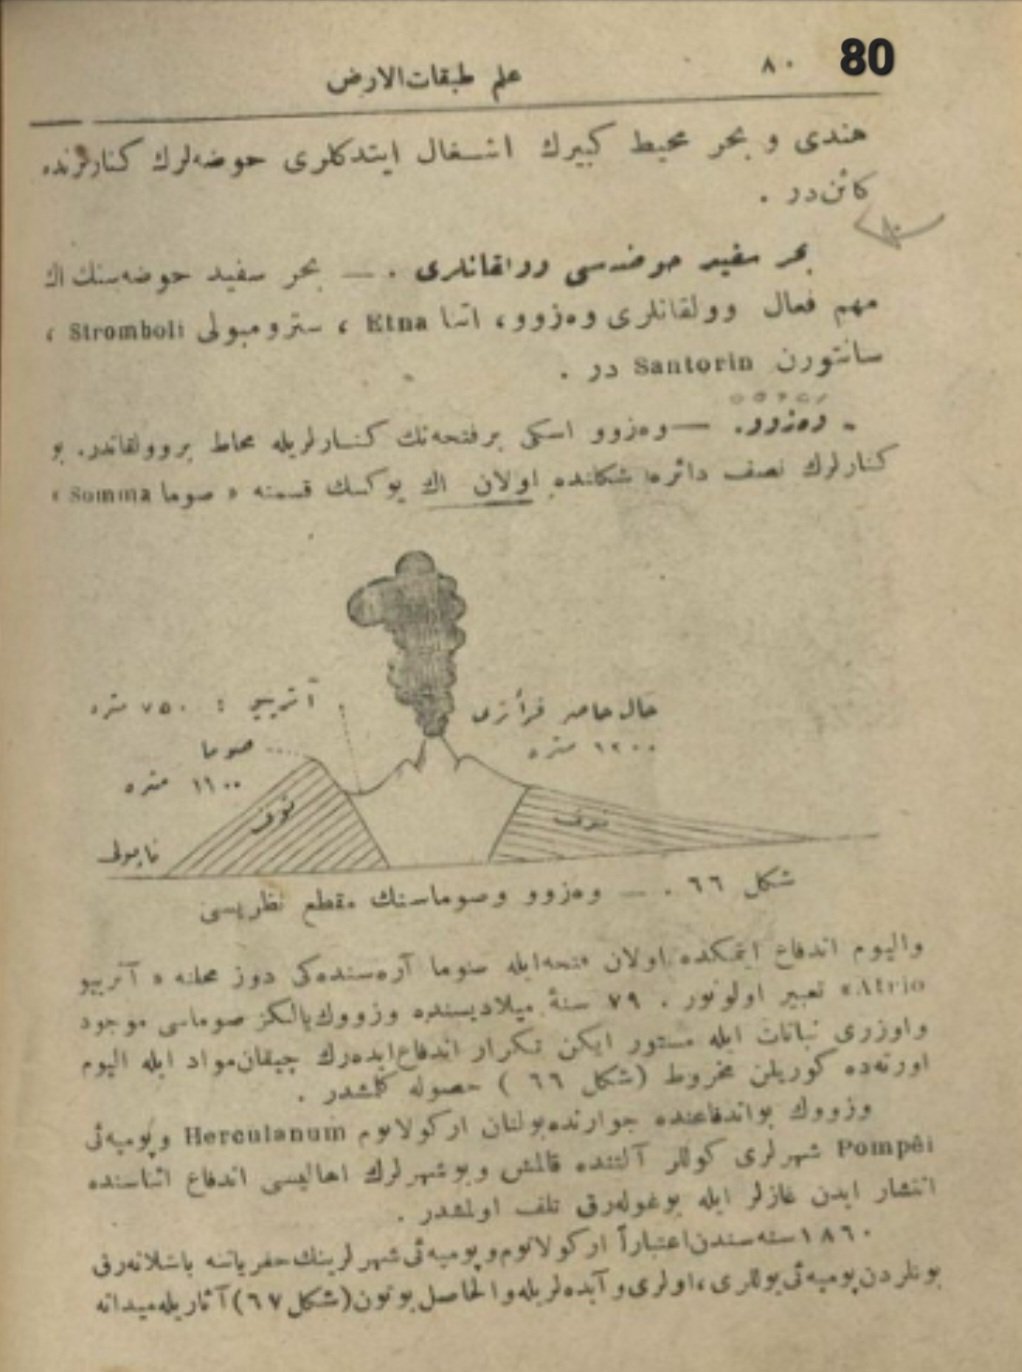 80
٨٠
علم طبقات‌الارض
هندى و بحر محيط كبيرك اشـغال ايتدكلرى حوضه‌لرك كنارلرنده
كائن‌در .
بحر سفيد حوضه‌سى وولقانلرى . — بحر سفيد حوضه‌سنك اك
مهم فعال وولقانلرى وه‌زوو، اتنا Etna ، سترومبولى Stromboli ،
سانتورن Santorin در .
ـ وه‌زوو. — وه‌زوو اسكى برفتحه‌نك كنـارلريله محاط بروولقاندر. بو
كنارلرك نصف دائره شكلنده اولان اك يوكسك قسمنه « صوما Somma »
آتريو : ٧٥٠ متره
حال حاضر قرأترى
١٢٠٠ متره
صوما
١١٠٠ متره
توف
توف
ناپولى
شكل ٦٦ . — وه‌زوو وصوماسنك مقطع نظريسى
واليوم اندفاع ايتمكده اولان فتحه‌ايله صوما آره‌سنده‌كى دوز محلنه « آتريو
Atrio » تعبير اولونور . ٧٩ سنۀ ميلاديسنده وزووك يالكز صوماسى موجود
واوزرى نباتات ايله مستور ايكن تكرار اندفاع ايده‌رك چيقان مواد ايله اليوم
اورته‌ده كوريلن مخروط (شكل ٦٦ ) حصوله كلمشدر .
وزووك بواندفاعنده جوارنده‌بولنان اركولانوم Herculanum و پومپه‌ئى
Pompêi شهرلرى كوللر آلتنده قالمش وبوشهرلرك اهاليسى اندفاع اثناسنده
انتشار ايدن غازلر ايله بوغوله‌رق تلف اولمشدر .
١٨٦٠ سنه‌سندن‌اعتباراً اركولانوم‌وپومپه‌ئى شهرلرينك‌حفرياتنه باشلانه‌رق
بونلردن پومپه‌ئى يوللرى، اولرى و آبده‌لريله والحاصل بوتون (شكل ٦٧) آثاريله ميدانه